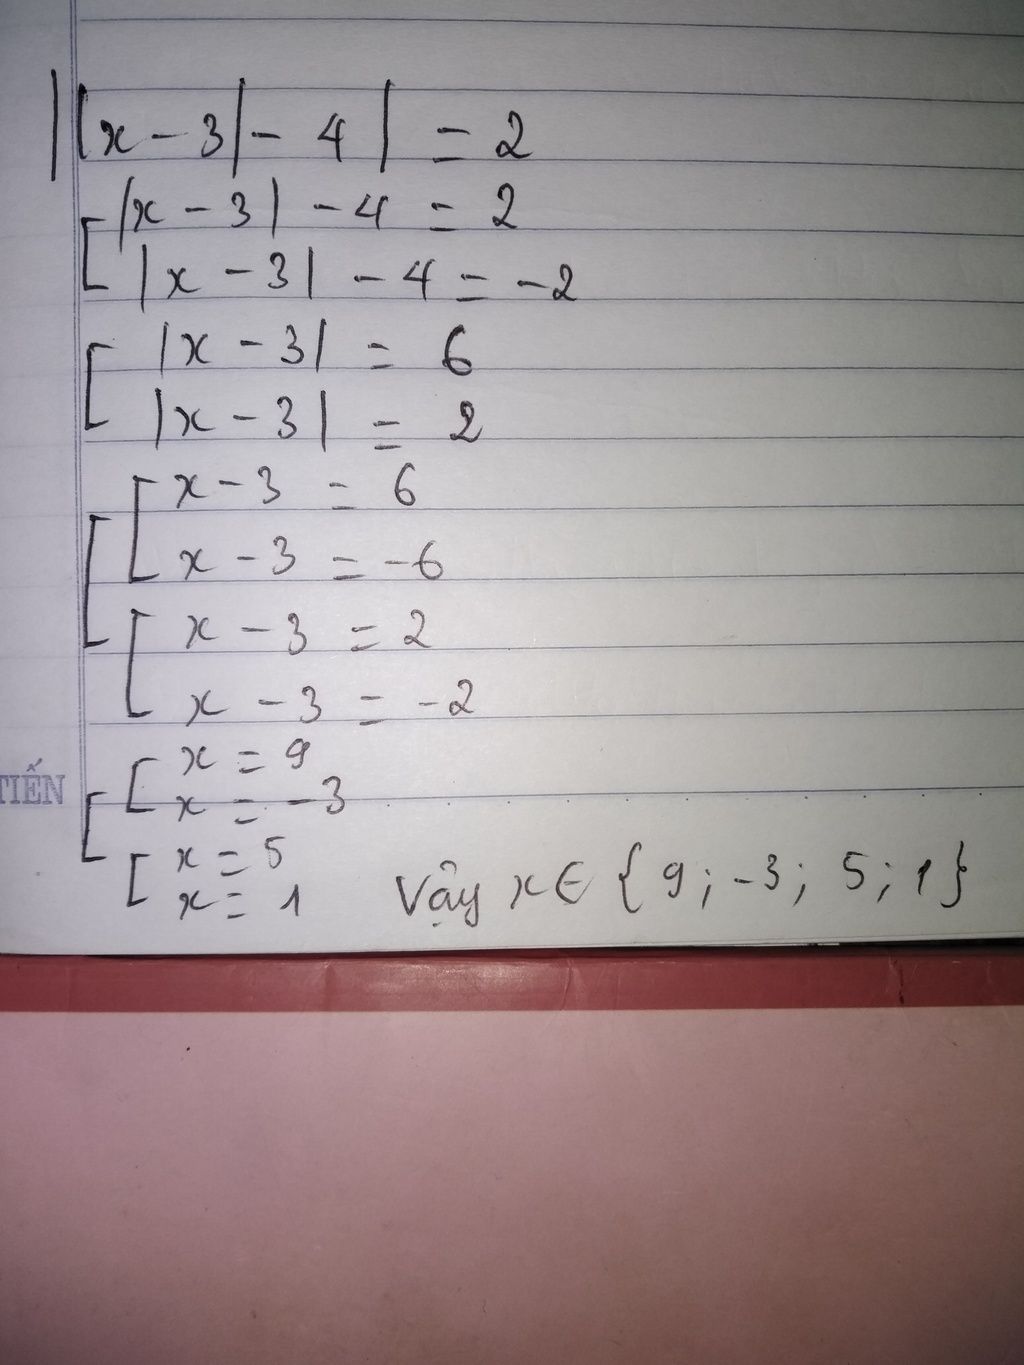 ||x - 3| - 4| = 2
[ |x - 3| - 4 = 2
|x - 3| - 4 = -2
[ |x - 3| = 6
|x - 3| = 2
[ [ x - 3 = 6
x - 3 = -6
[ x - 3 = 2
x - 3 = -2
[ [ x = 9
x = -3
TIẾN
[ x = 5
x = 1 Vậy x ∈ { 9 ; -3 ; 5 ; 1 }